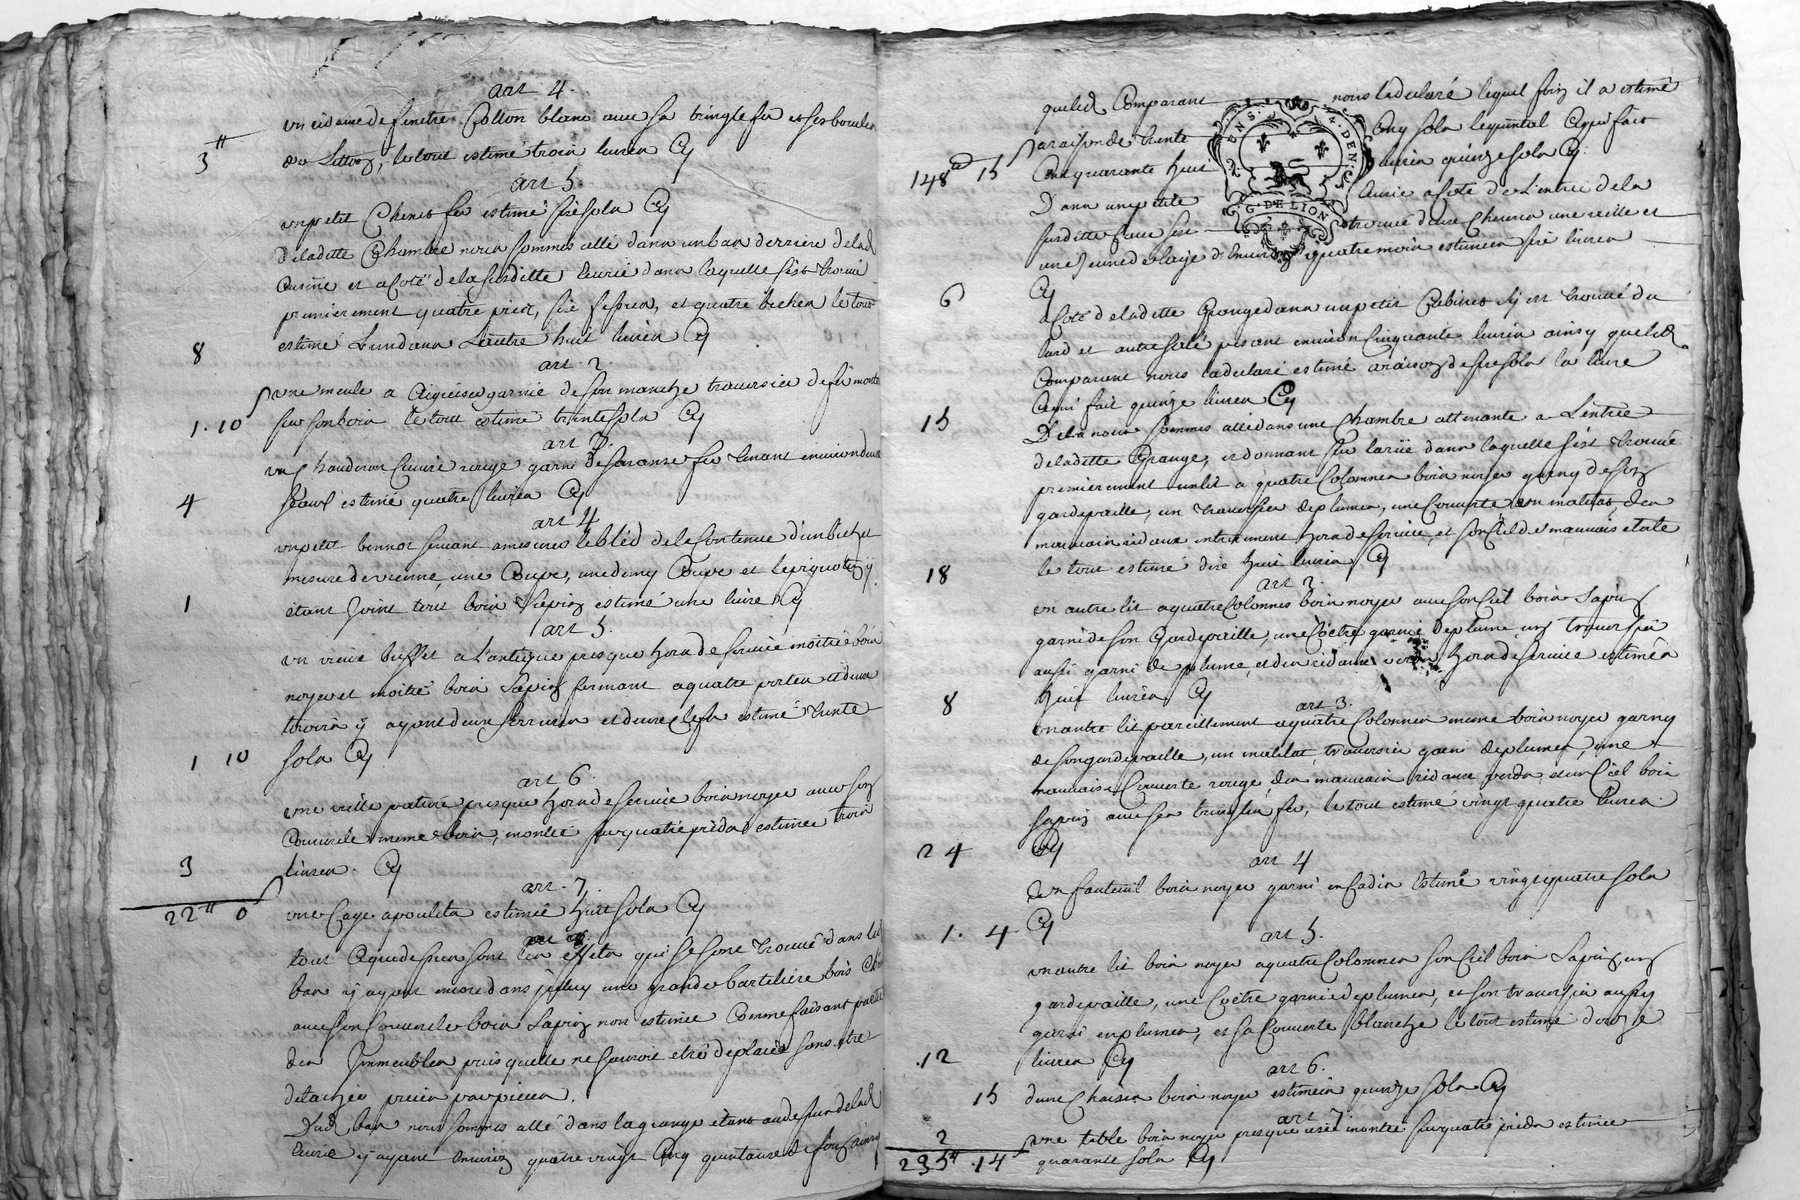 art 4.
un ridaue de fenetre Cotton blanc avec sa tringle fer et ses boucles
de Letton, le tout estimé trois livres Cy
3 ₶
art 5.
un petit Chenet fer estimé six sols Cy
De ladette Chambre nous sommes allé dans un bas derriere de lad
Cuisine et a Coté de la susditte Ecurie dans laquelle s'est trouvé
premierement quatre pics, six fessous, et quatre beches le tout
estimé L'un dans L'autre huit livres Cy
8
art. 2.
une meule a Eguiser garnie de son manche traversier de fer montée
sur son bois le tout estimé trente sols Cy
1. 10 s
art 3.
un Chauderon Cuivre rouge garni de son anse fer tenant environ deux
seaux estimé quatre livres Cy
4
art 4
un petit bennot servant a mesurer le bléd de la Contenue d'un bichet
mesure de vienne, une Coupe, une demy Coupe et le piquotin y
etant joint tout bois sapin estimé une livre Cy
1
art 5.
un vieux buffet a L'antique presque hors de service moitié bois
noyer et moitié bois sapin fermant a quatre portes et deux
tiroirs y ayant deux serrures et deux Clefs estimé trente
sols Cy
1 10
art 6.
une vielle pature presque hors de service bois noyer avec son
Couvercle meme bois, montée sur quatre piéds estimée trois
livres. Cy
3
22 ₶ 0 s
art. 7.
une Cage a poulets estimée huit sols Cy
art 8.
tout Ce que dessus sont les effets qui se sont trouvé dans led
bas y ayant encore dans jceluy une grande barteliere bois Chene
avec son Couvercle bois sapin non estimée Comme faisant partie
des Immeubles puis quelle ne sauroit etre déplacée sans etre
detachée pieces par pieces.
Dud bas nous sommes allé dans la grange etant au dessus de lad
Ecurie y ayant environ quatre vingt Cinq quintaux de foin ainsy
que led Comparant nous la declaré lequel foin il a estimé
a raison de trente Cinq sols le quintal Ce qui fait
Cent quarante huit livres quinze sols Cy
148 ₶ 15 s
GEN. DE LION
Dans une petite Ecurie a Coté de L'entrée de la
susditte Cour s'est trouvé deux Chevres une vielle et
une jeune de l'age d'environ quatre mois estimées six livres
Cy
6
a Coté de ladette Grange dans un petit Cabinet s'y est trouvé du
lard et autre salé pesant environ Cinquante livres ainsy que led.
Comparant nous la declaré estimé a raison de six sols la livre
Ce qui fait quinze livres Cy
15
De la nous sommes allé dans une Chambre attenante a L'entrée
de ladette Grange, et donnant sur la rüe dans laquelle s'est trouvé
premierement un lit a quatre Colonnes bois noyer garny de son
gardepaille, un traversier de plumes, une Couverte un matelas, des
mauvais rideaux entierement hors de service, et son Ciel de mauvais etoffe
le tout estimé dix huit livres Cy
18
art 2.
un autre lit a quatre Colonnes bois noyer avec son Ciel bois sapin
garni de son Gardepaille, une Coetre garnie de plume un traversier
aussi garni de plume, et des rideaux verds hors de service estimés
huit livres Cy
8
art 3.
un autre lit pareillement a quatre Colonnes meme bois noyer garny
de son gardepaille, un matelat, traversier garni de plumes, une
mauvaise Couverte rouge, des mauvais rideaux verds et un Ciel bois
sapin avec ses tringles fer, le tout estimé vingt quatre livres.
Cy
24
art 4
un fauteuil bois noyer garni en Cadis Estimé vingt quatre sols
Cy
1. 4
art 5.
un autre lit bois noyer a quatre Colonnes son Ciel bois sapin un
gardepaille, une Coetre garnie de plumes, et son traversier aussy
garni en plumes, et sa Couverte blanche le tout estimé douze
livres Cy
12
art 6.
deux Chaises bois noyer estimées quinze sols Cy
15
art 7.
une table bois noyer presque usée montée sur quatre piéds estimée
quarante sols Cy
2
235 ₶ . 14 s